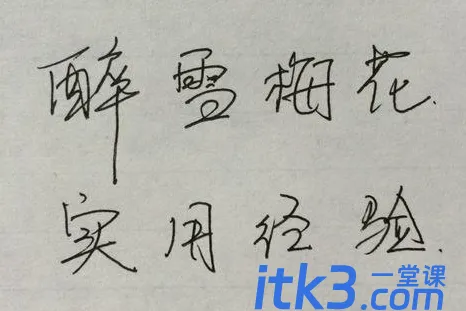 醉雪梅花.
实用经验.
itk3.一堂课
.com